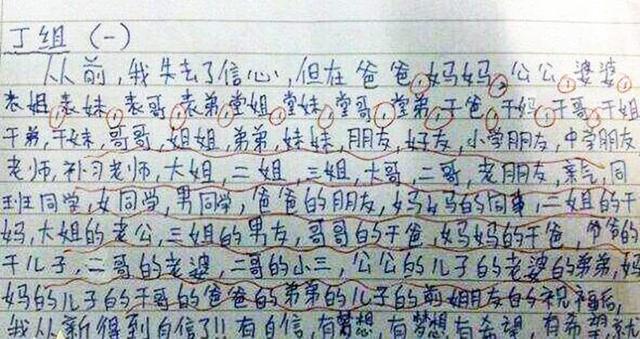 丁组 (一)
从前,我失去了信心,但在爸爸,妈妈,公公,婆婆,
表姐,表妹,表哥,表弟,堂姐,堂妹,堂哥,堂弟,干爸,干妈,干哥,干姐
干弟,干妹,哥哥,姐姐,弟弟,妹妹,朋友,好友,小学朋友,中学朋友
老师,补习老师,大姐,二姐,三姐,大哥,二哥,老朋友,亲戚,同
班同学,女同学,男同学,爸爸的朋友,妈妈的同事,二姐的干
妈,大姐的老公,三姐的男友,哥哥的干爸,妈妈的干爸,爷爷的
干儿子,二哥的老婆,二哥的小三,公公的儿子的老婆的弟弟,妈
妈的儿子的干哥的爸爸的弟弟的儿子的前女朋友的祝福后,
我从新得到自信了!!有自信,有梦想,有梦想,有希望,有希望,就